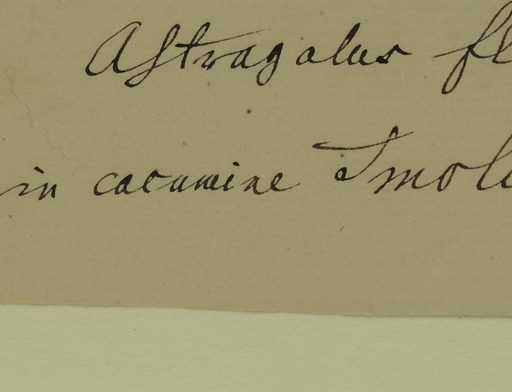 Astragalus fl
in cacumine Tmoli